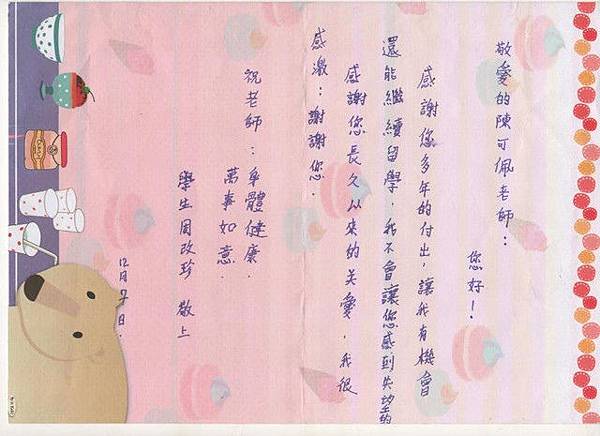 敬愛的陳可佩老師：
您好！
感謝您多年的付出，讓我有機會
還能繼續留學，我不會讓您感到失望的
感謝您長久以來的关愛，我很
感激：謝謝您．
祝老師：身體健康．
萬事如意．
學生周改珍 敬上
12月7日．